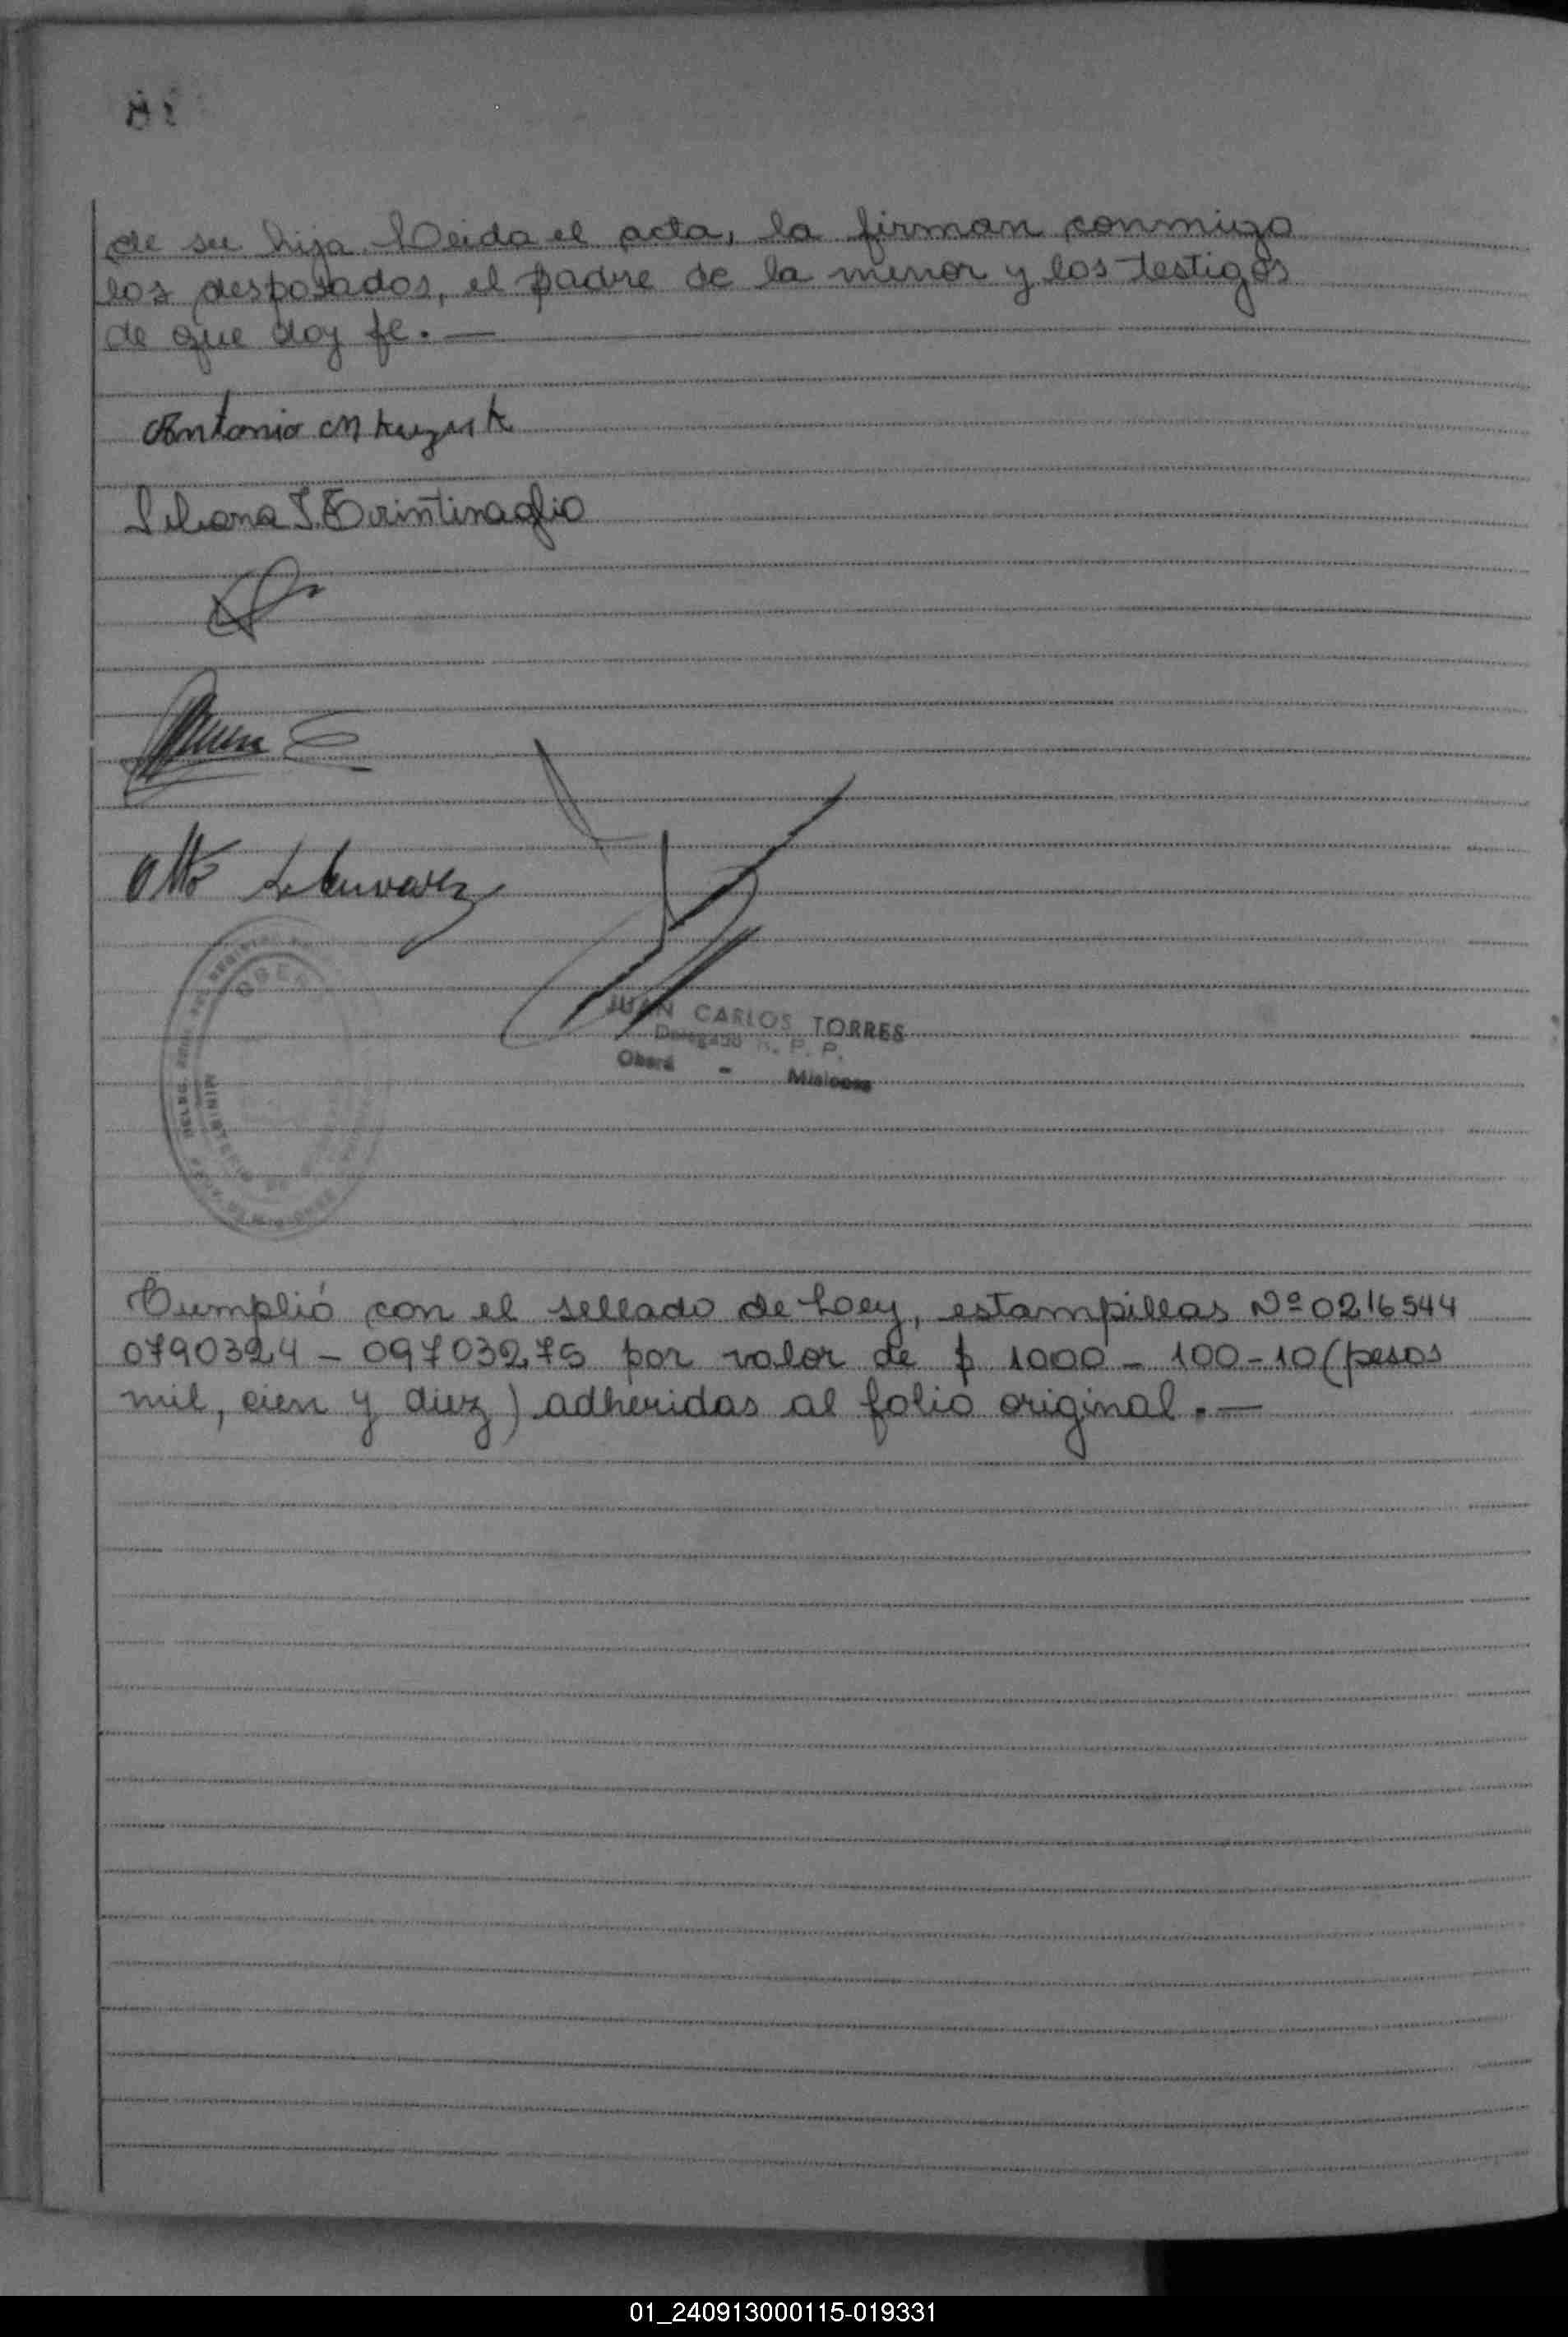 de su hija. Leída el acta, la firman conmigo
los desposados, el padre de la menor y los testigos
de que doy fe. —
Antonio M
Liliana I. Trintinaglio
Otto Schwarz
OBERÁ
JUAN CARLOS TORRES
Delegado R. P. P.
Oberá - Misiones
Cumplió con el sellado de Ley, estampillas Nº 0216544
0790324 - 09703275 por valor de $ 1000 - 100 - 10 (pesos
mil, cien y diez) adheridas al folio original. —
01_240913000115-019331